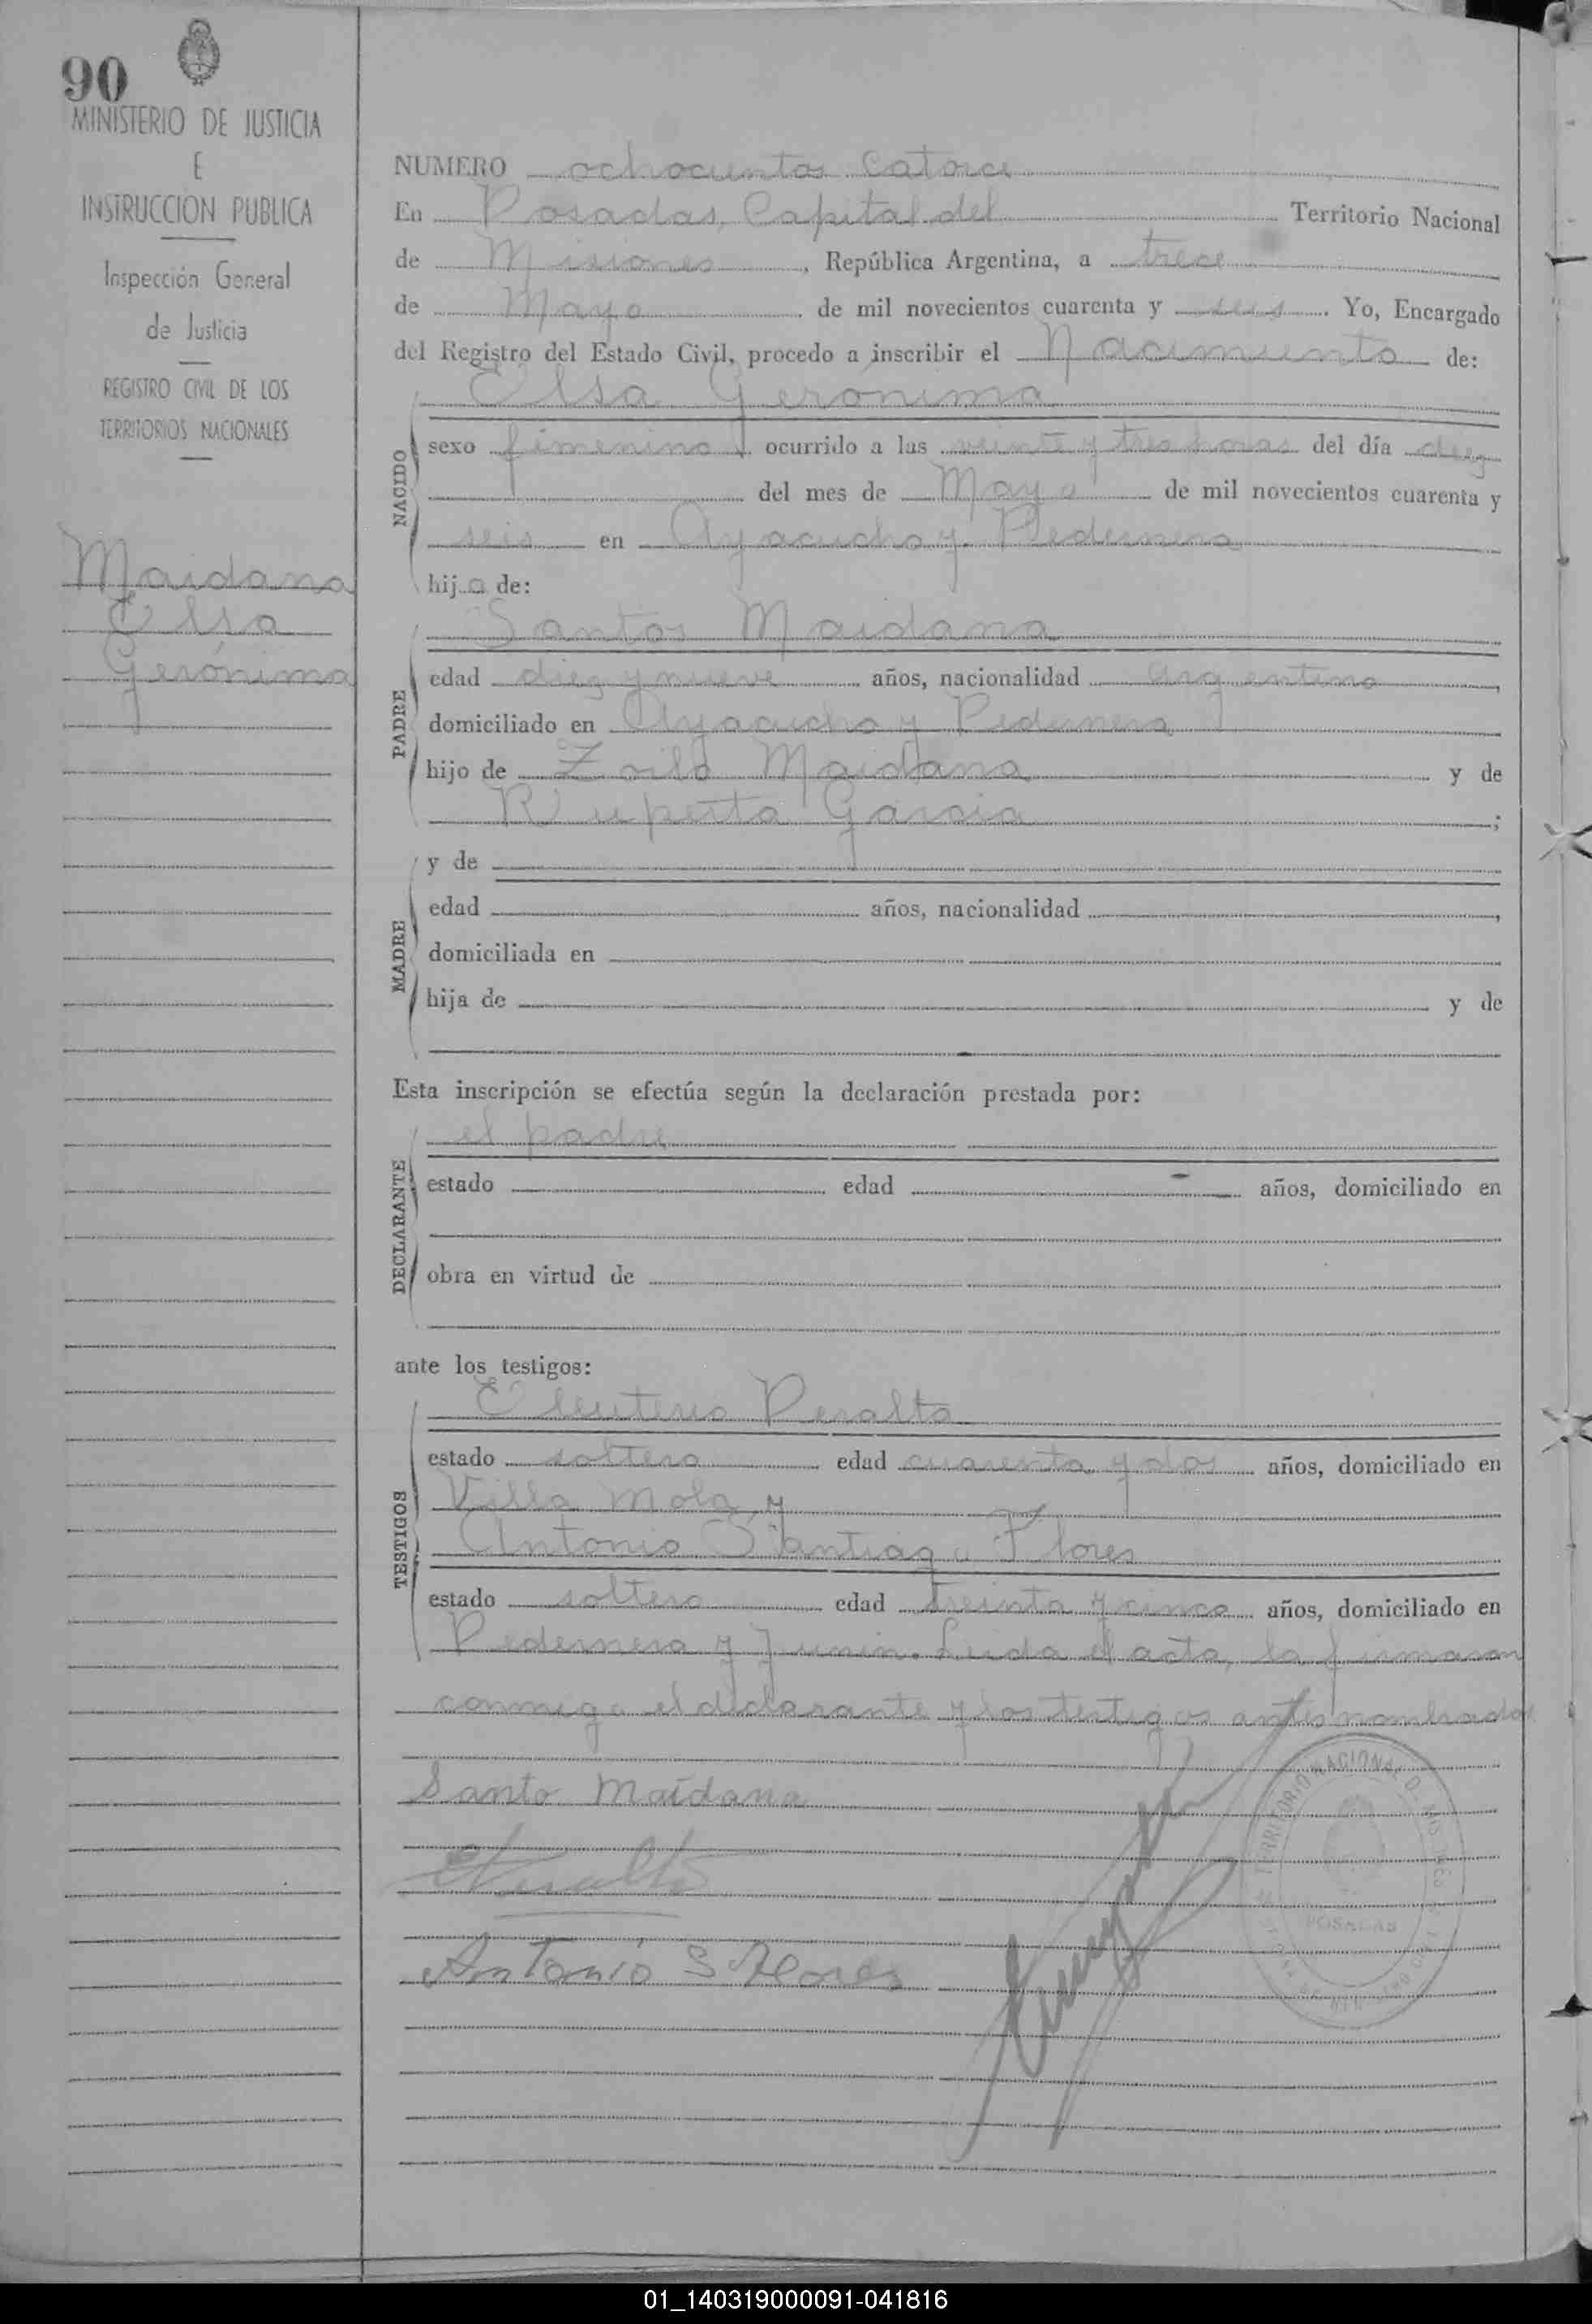 90
MINISTERIO DE JUSTICIA
E
INSTRUCCION PUBLICA
Inspección General
de Justicia
REGISTRO CIVIL DE LOS
TERRITORIOS NACIONALES
Maidana
Elsa
Gerónima
NUMERO ochocientos catorce
En Posadas, Capital del Territorio Nacional
de Misiones, República Argentina, a trece
de Mayo de mil novecientos cuarenta y seis. Yo, Encargado
del Registro del Estado Civil, procedo a inscribir el Nacimiento de:
Elsa Gerónima
NACIDO
sexo femenino ocurrido a las veinte y tres horas del día diez
del mes de Mayo de mil novecientos cuarenta y
seis en Ayacucho y Pedernera
hija de:
Santos Maidana
PADRE
edad diez y nueve años, nacionalidad argentino,
domiciliado en Ayacucho y Pedernera
hijo de Zoilo Maidana y de
Ruperta Garcia;
y de
MADRE
edad años, nacionalidad,
domiciliada en
hija de y de
Esta inscripción se efectúa según la declaración prestada por:
el padre
DECLARANTE
estado edad años, domiciliado en
obra en virtud de
ante los testigos:
Eleuterio Peralta
TESTIGOS
estado soltero edad cuarenta y dos años, domiciliado en
Villa Mola, y
Antonio Santiago Flores
estado soltero edad treinta y cinco años, domiciliado en
Pedernera y Junin. Leida el acta, la firmaron
conmigo el declarante y los testigos antes nombrados
Santo Maidana
EPeralta
Antonio S Flores
TERRITORIO NACIONAL DE MISIONES
POSADAS
01_140319000091-041816